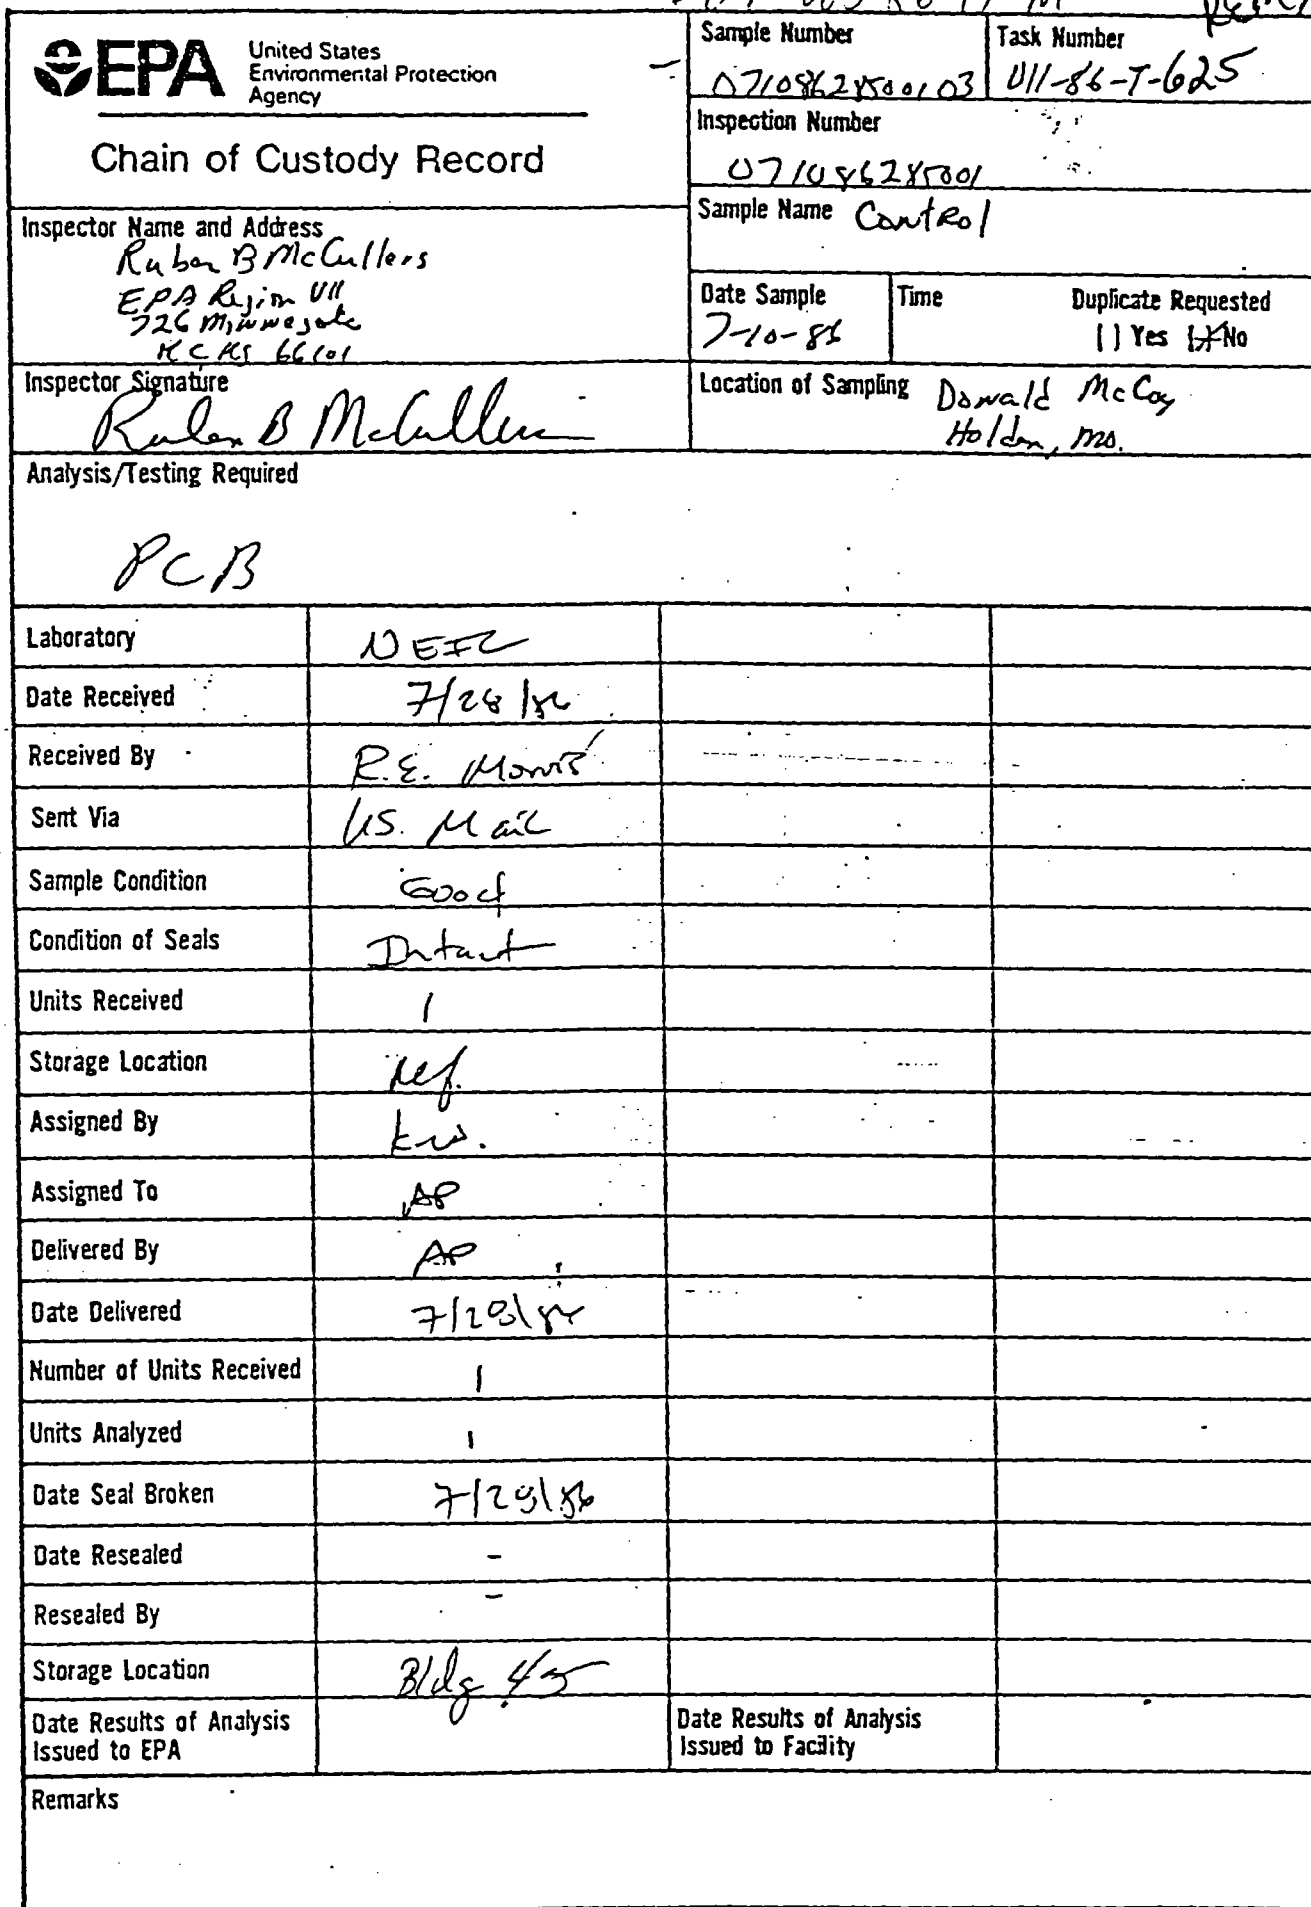 EPA
United States
Environmental Protection
Agency
Chain of Custody Record
Sample Number
07108628500103
Task Number
VII-86-T-625
Inspection Number
071086285001
Inspector Name and Address
Ruben B McCullers
EPA Region VII
726 Minnesota
KC KS 66101
Sample Name Control
Date Sample
7-10-86
Time
Duplicate Requested
[ ] Yes [X] No
Inspector Signature
Ruben B McCullers
Location of Sampling Donald McCoy
Holden, Mo.
Analysis/Testing Required
PCB
Laboratory NEIC
Date Received 7/28/86
Received By R.E. Morris
Sent Via US. Mail
Sample Condition Good
Condition of Seals Intact
Units Received 1
Storage Location Ref.
Assigned By kw.
Assigned To AP
Delivered By AP
Date Delivered 7/28/86
Number of Units Received 1
Units Analyzed 1
Date Seal Broken
Date Resealed -
Resealed By -
Storage Location Bldg 45
Date Results of Analysis
Issued to EPA
Date Results of Analysis
Issued to Facility
Remarks